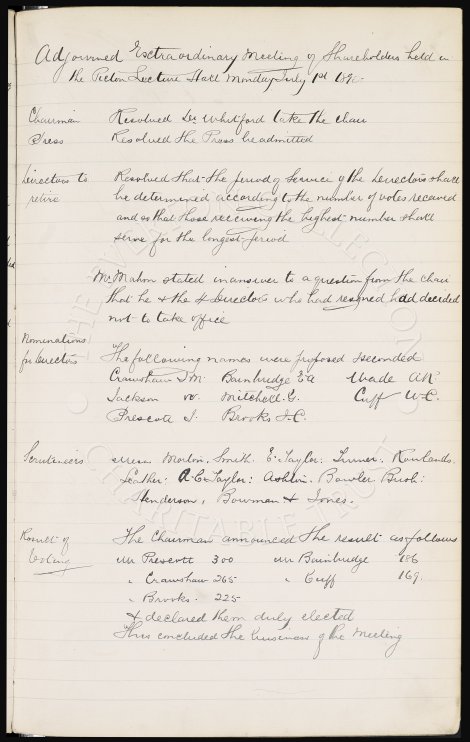 Adjourned Extraordinary Meeting of Shareholders held in
the Picton Lecture Hall Monday July 1st 189
Chairman Resolved Dr Whitford take the chair
Press Resolved the Press be admitted
Directors to Resolved that the period of Service of the Directors shall
retire be determined according to the number of votes received
and so that those receiving the highest number shall
serve for the longest period
Mr Mahon stated in answer to a question from the chair
that he & the 4 Directors who had resigned had decided
not to take office
Nominations
for Directors The following names were proposed & seconded
Crawshaw T.M. Bainbridge E.A Wade A.R.
Jackson W. Mitchell. G. Cuff W.C.
Prescott J. Brooks J.C.
Scrutineers Messrs Morton. Smith. E. Taylor. Turner. Rowlands.
Leather: A.C. Taylor: Ashlin. Bowler Bush:
Henderson, Bowman & Jones.
Result of The Chairman announced the result as follows
Voting Mr Prescott 300 Mr Bainbridge 186
" Crawshaw 265 " Cuff 169.
" Brooks. 225
& declared them duly elected
This concluded the business of the Meeting
THE EVERTON COLLECTION
CHARITABLE TRUST